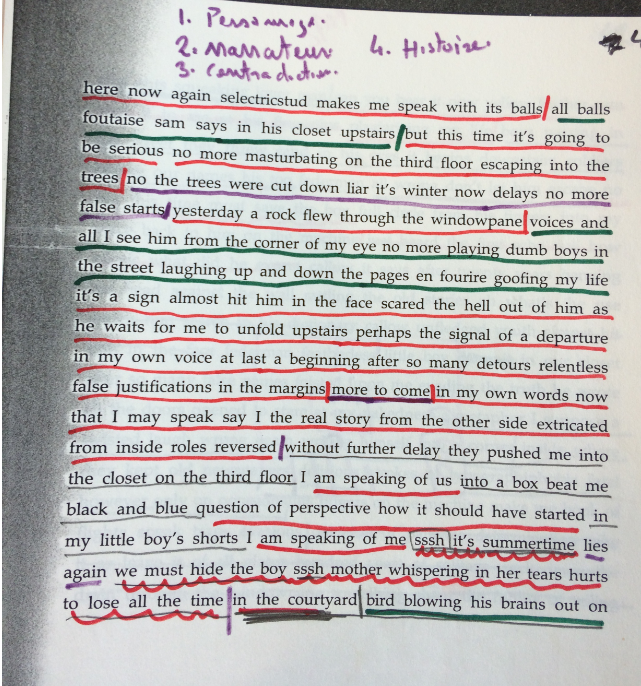 1. Personnage.
2. Narrateur 4. Histoire.
3. Contradiction.
4
here now again selectricstud makes me speak with its balls all balls
foutaise sam says in his closet upstairs but this time it's going to
be serious no more masturbating on the third floor escaping into the
trees no the trees were cut down liar it's winter now delays no more
false starts yesterday a rock flew through the windowpane voices and
all I see him from the corner of my eye no more playing dumb boys in
the street laughing up and down the pages en fourire goofing my life
it's a sign almost hit him in the face scared the hell out of him as
he waits for me to unfold upstairs perhaps the signal of a departure
in my own voice at last a beginning after so many detours relentless
false justifications in the margins more to come in my own words now
that I may speak say I the real story from the other side extricated
from inside roles reversed without further delay they pushed me into
the closet on the third floor I am speaking of us into a box beat me
black and blue question of perspective how it should have started in
my little boy's shorts I am speaking of me sssh it's summertime lies
again we must hide the boy sssh mother whispering in her tears hurts
to lose all the time in the courtyard bird blowing his brains out on